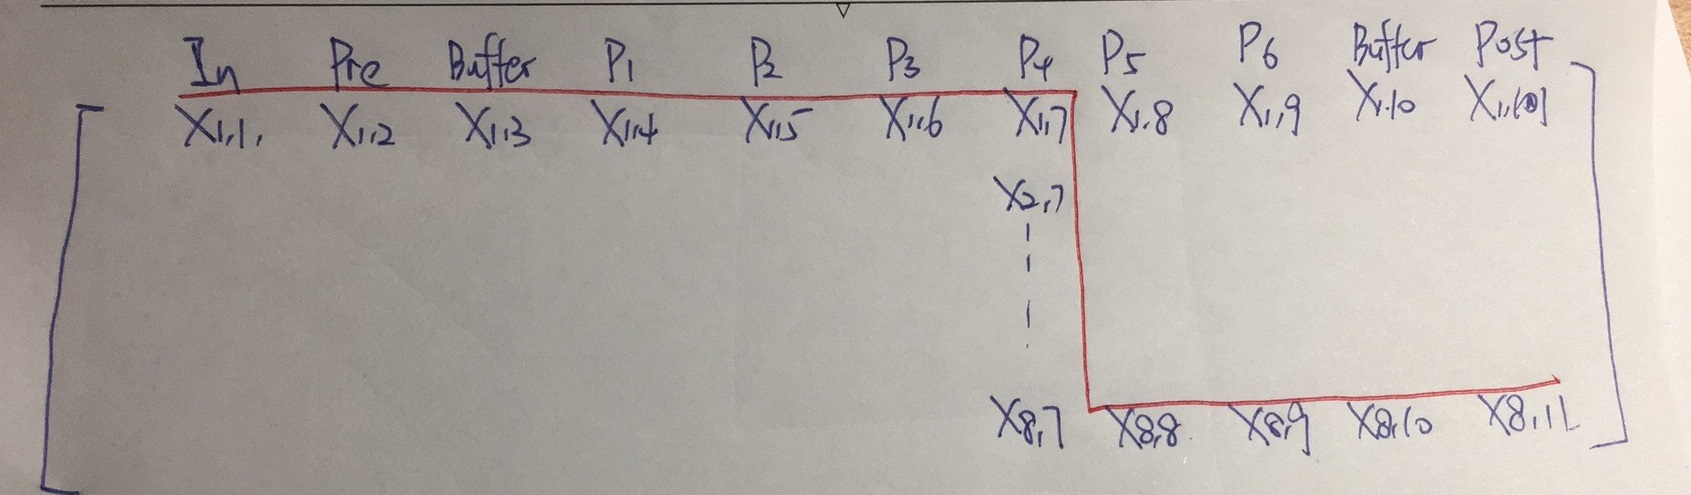 In Pre Buffer P1 P2 P3 P4 P5 P6 Buffer Post
X1,1, X1,2 X1,3 X1,4 X1,5 X1,6 X1,7 X1,8 X1,9 X1,10
X2,7
X8,7 X8,8 X8,9 X8,10 X8,11